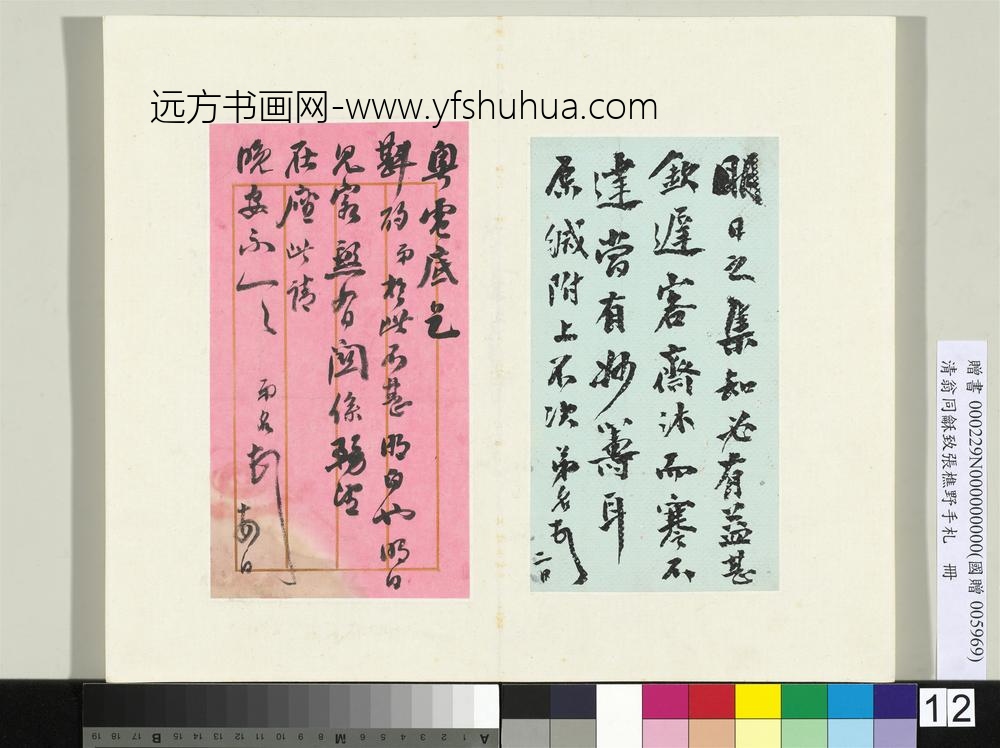 远方书画网-www.yfshuhua.com
明日之集知必有益甚
欽遲客齋沐而寒不
達當有妙籌耳
原緘附上不次弟名
二日
粵電底乞
斟酌弟於此不甚明白也明日
見客盤有關係務望
在座此請
晚安不一
弟名
日
贈書 000229N000000000(國贈 005969)
清翁同龢致張樵野手札 冊
12
A 1 2 3 4 5 6 7 8 M 10 11 12 13 14 15 B 17 18 19